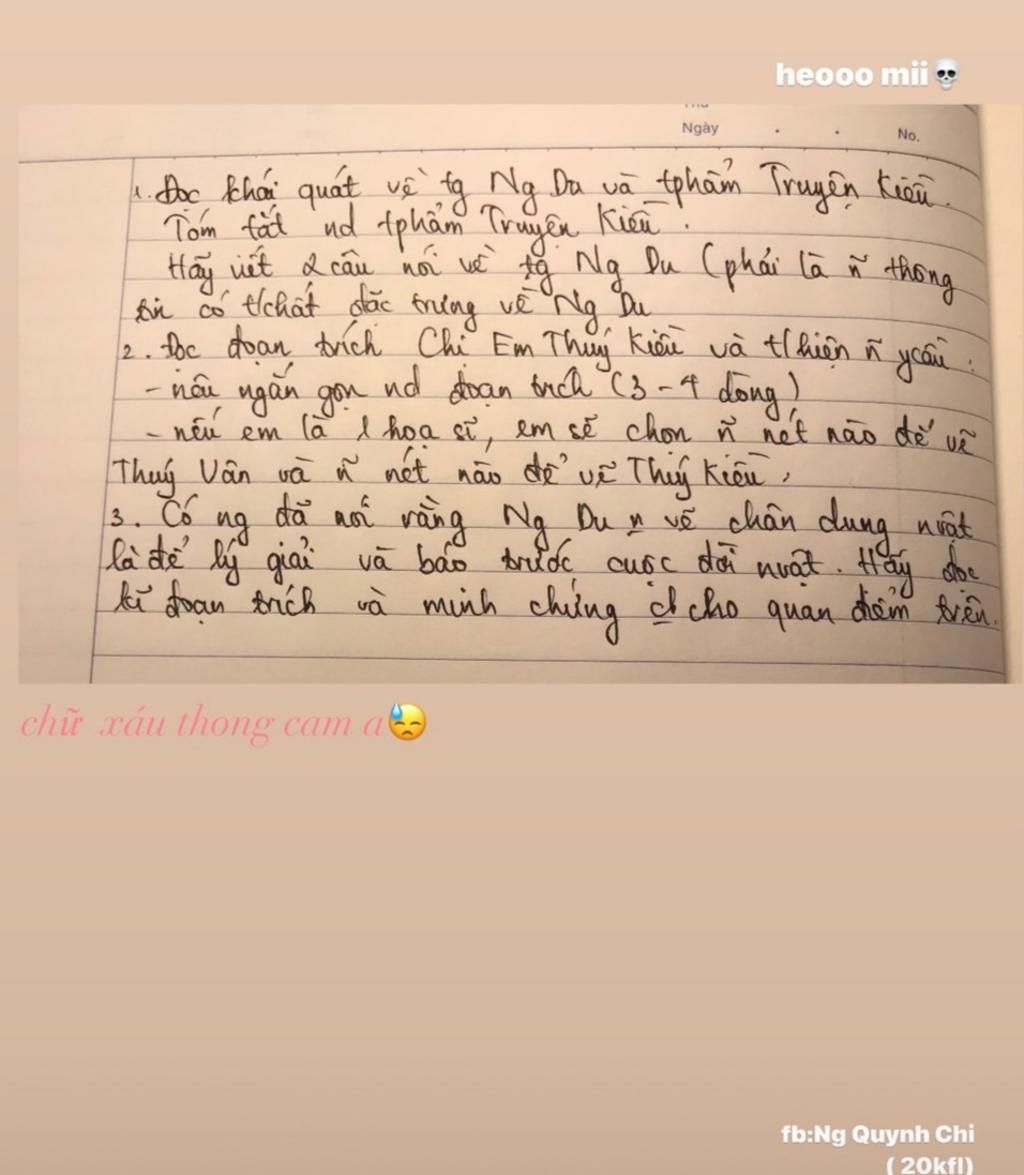 heooo mii💀
Ngày . . No.
1. Đọc khái quát về tg Ng Du và tphẩm Truyện Kiều.
Tóm tắt nd tphẩm Truyện Kiều.
Hãy viết 2 câu nói về tg Ng Du (phải là ñ thông
tin có t/chất đặc trưng về Ng Du
2. Đọc đoạn trích Chị Em Thuý Kiều và t/hiện ñ ycầu:
- nêu ngắn gọn nd đoạn trích (3-4 dòng)
- nếu em là 1 hoạ sĩ, em sẽ chọn ñ nét nào để vẽ
Thuý Vân và ñ nét nào để vẽ Thuý Kiều,
3. Có ng đã nói rằng Ng Du n vẽ chân dung nvật
là để lý giải và báo trước cuộc đời nvật. Hãy đọc
kĩ đoạn trích và minh chứng cho quan điểm trên.
chữ xáu thong cam a😓
fb:Ng Quynh Chi
( 20kfl)